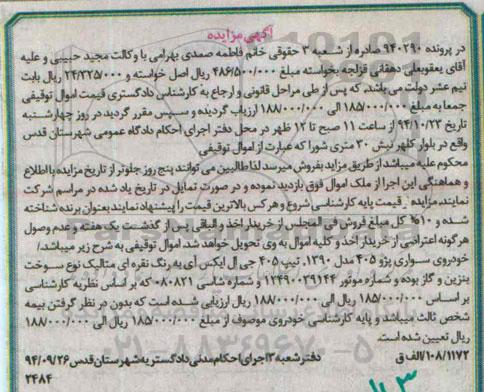 آگهی مزایده
در پرونده ۹۴۰۲۹۰ صادره از شعبه ۳ حقوقی خانم فاطمه صمدی بهرامی با وکالت مجید حبیبی و علیه
آقای یعقوبعلی دهقانی قزلجه بخواسته مبلغ ۴۸۶/۵۰۰/۰۰۰ ریال اصل خواسته و ۲۴/۳۲۵/۰۰۰ ریال بابت
نیم عشر دولت می باشد، که پس از طی مراحل قانونی و ارجاع به کارشناس دادگستری قیمت اموال توقیفی
جمعا به مبلغ ۱۸۵/۰۰۰/۰۰۰ الی ۱۸۸/۰۰۰/۰۰۰ ارزیاب گردیده و سپس مقرر گردید در روز چهارشنبه
تاریخ ۹۴/۱۰/۲۳ از ساعت ۱۱ صبح تا ۱۲ ظهر در محل دفتر اجرای احکام دادگاه عمومی شهرستان قدس
واقع در بلوار کلهر نبش ۳۰ متری شورا که عبارت از اموال توقیفی
محکوم علیه میباشد از طریق مزاید بفروش میرسد لذا طالبین می توانند پنج روز جلوتر از تاریخ مزایده با اطلاع
و هماهنگی این اجرا از ملک اموال فوق بازدید نموده و در صورت تمایل در تاریخ یاد شده در مراسم شرکت
نمایند مزایده از قیمت پایه کارشناسی شروع و هر کس بالاترین قیمت را پیشنهاد نمایند بعنوان برنده شناخته
شده و ۱۰% کل مبلغ فروش فی المجلس از خریدار اخذ و الباقی پس از گذشت یک هفته و عدم وصول
هر گونه اعتراضی از خریدار اخذ و کلیه اموال به وی تحویل خواهد شد. اموال توقیفی به شرح زیر میباشد/
خودروی سواری پژو ۴۰۵ مدل ۱۳۹۰، تیپ ۴۰۵ جی ال ایکس آی به رنگ نقره ای متالیک نوع سوخت
بنزین و گاز بوده و شماره موتور ۱۲۴۹۰۰۳۹۱۴۴ و شماره شاسی ۰۸۰۸۲۱ که بر اساس نظریه کارشناسی
بر اساس ۱۸۵/۰۰۰/۰۰۰ ریال الی ۱۸۸/۰۰۰/۰۰۰ ریال ارزیابی شده است که بدون در نظر گرفتن بیمه
شخص ثالث میباشد و پایه کارشناسی خودروی موصوف از مبلغ ۱۸۵/۰۰۰/۰۰۰ ریال الی ۱۸۸/۰۰۰/۰۰۰
ریال تعیین شده است.
۱۰۸/۱۱۷۲/الف ق دفتر شعبه ۳ اجرای احکام مدنی دادگستری شهرستان قدس ۹۴/۰۹/۲۶
۲۴۸۴
۰۲۱-۸۸۳۴۹۶۷۰-۵